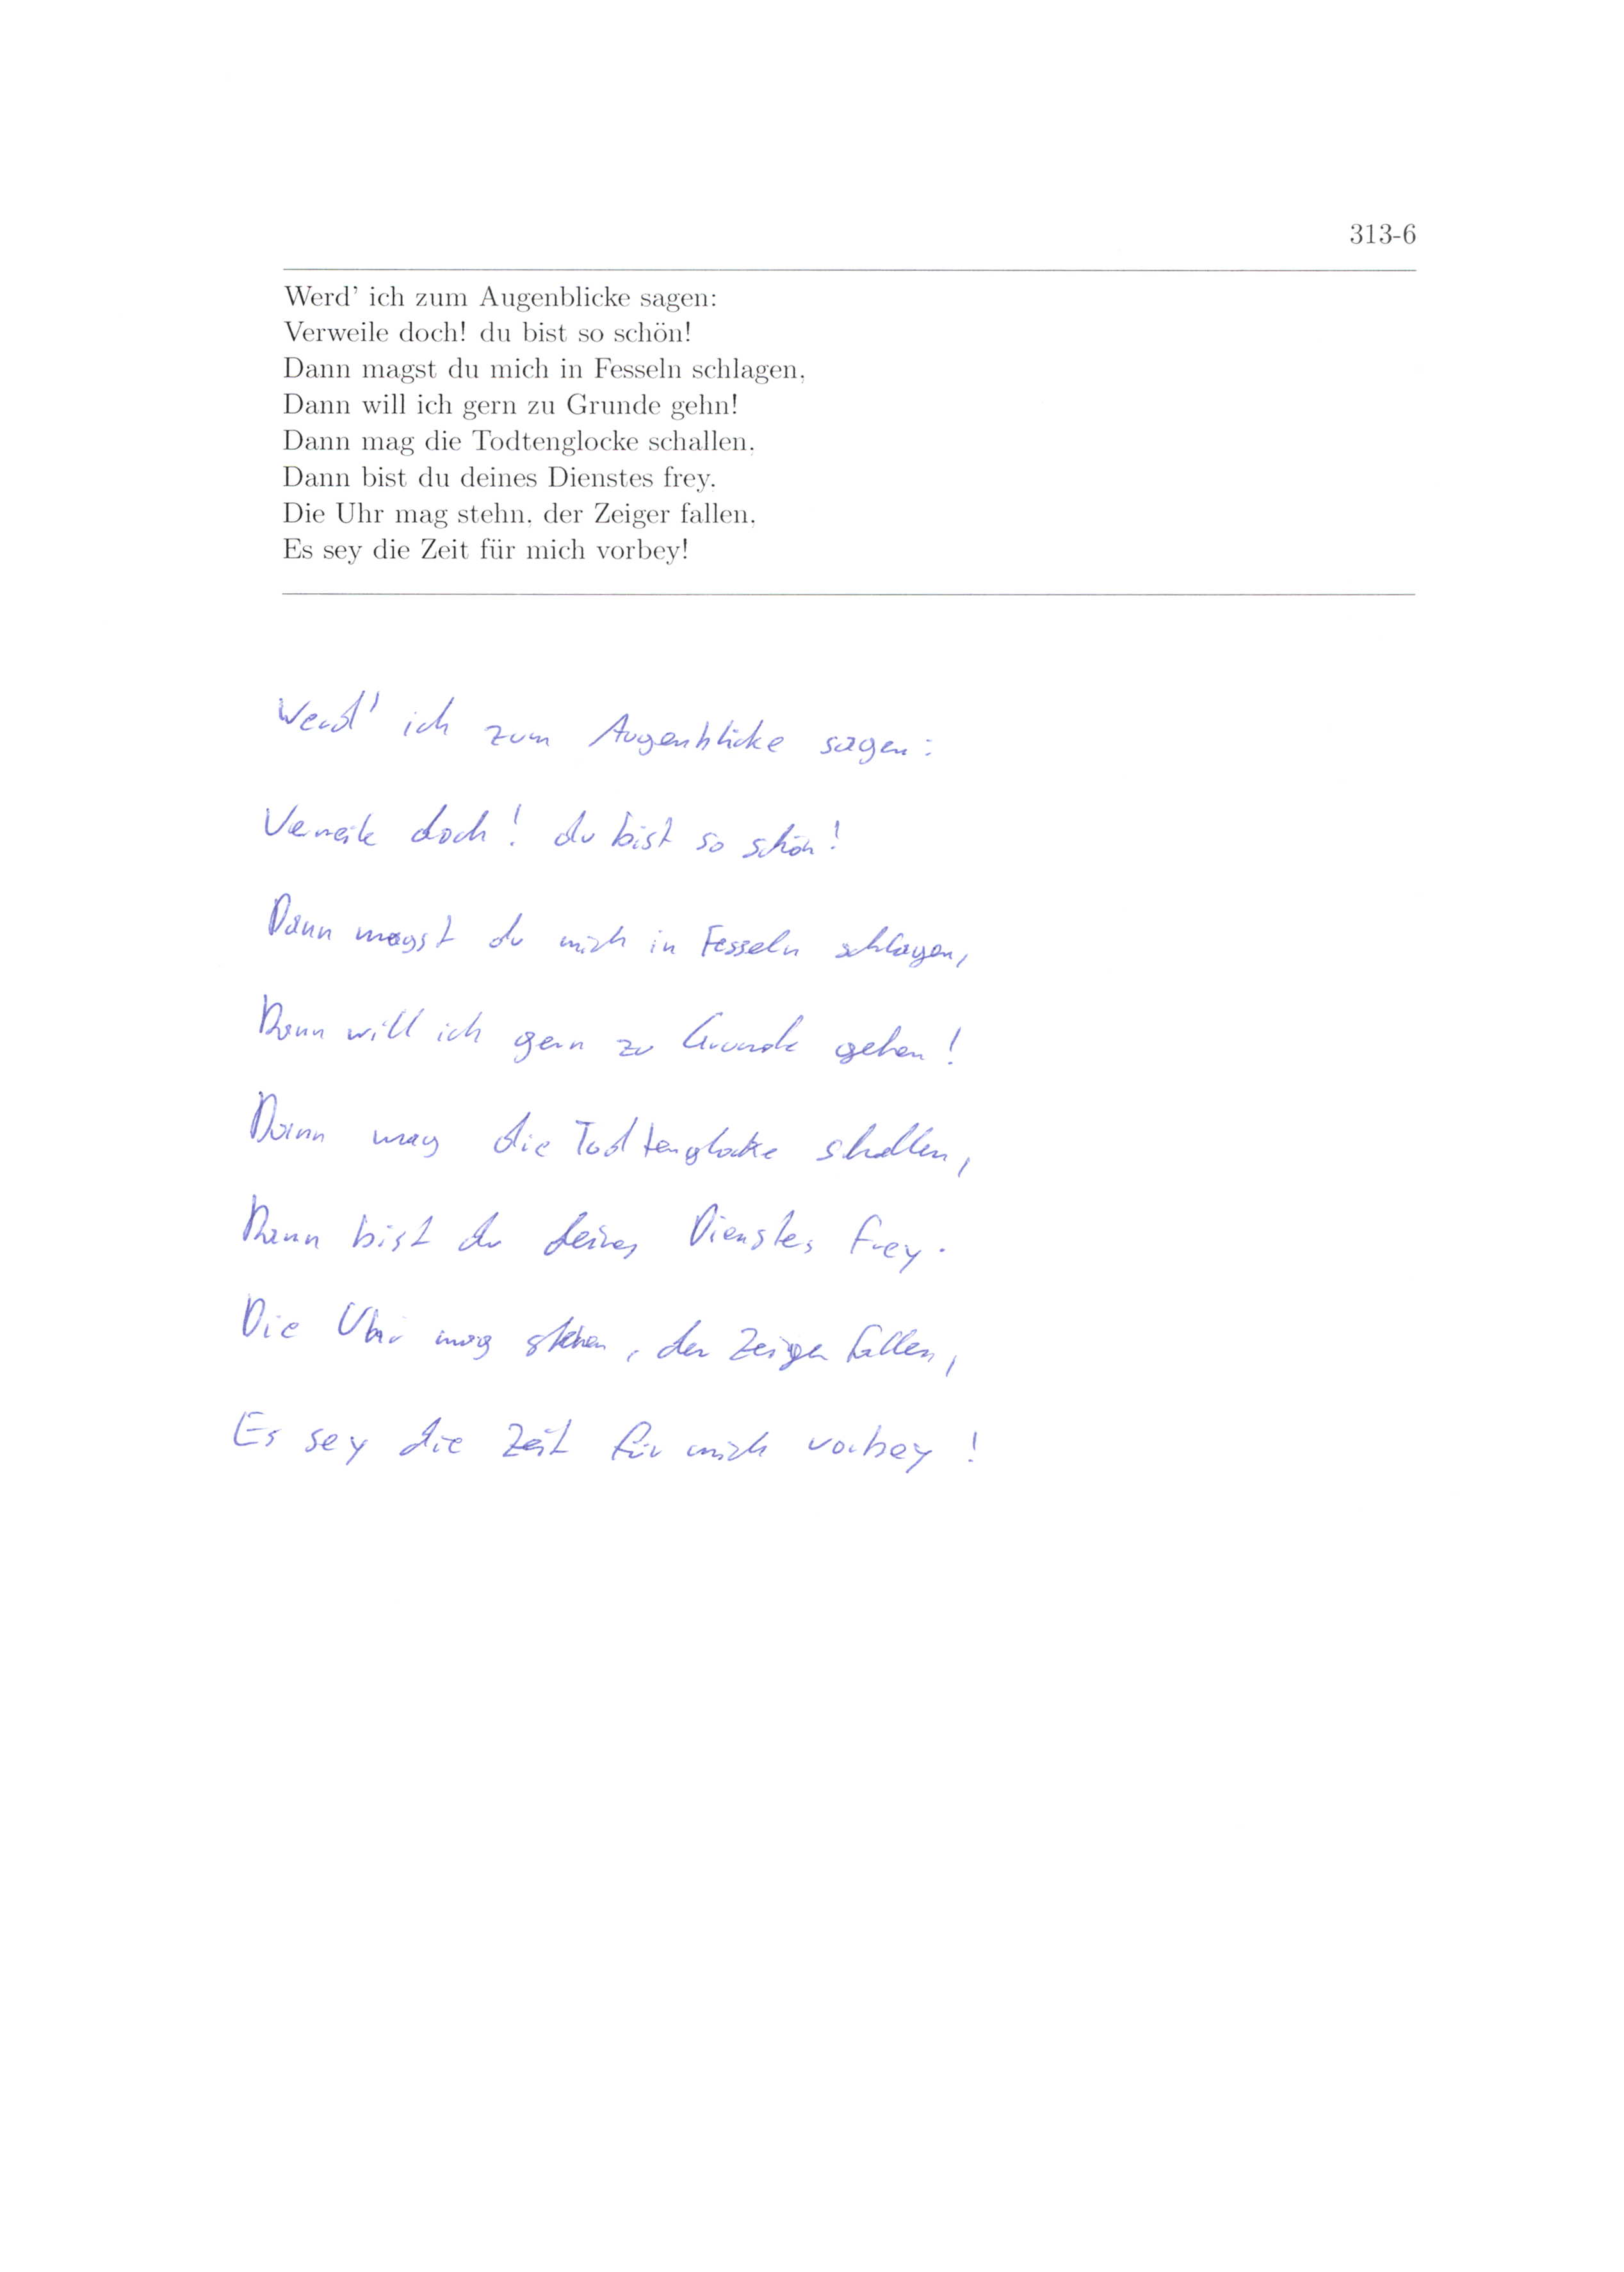 313-6
Werd' ich zum Augenblicke sagen:
Verweile doch! du bist so schön!
Dann magst du mich in Fesseln schlagen,
Dann will ich gern zu Grunde gehn!
Dann mag die Todtenglocke schallen,
Dann bist du deines Dienstes frey,
Die Uhr mag stehn, der Zeiger fallen,
Es sey die Zeit für mich vorbey!
Werd' ich zum Augenblicke sagen:
Verweile doch! du bist so schön!
Dann magst du mich in Fesseln schlagen,
Dann will ich gern zu Grunde gehen!
Dann mag die Todtenglocke schallen,
Dann bist du deines Dienstes frey.
Die Uhr mag stehen, der Zeiger fallen,
Es sey die Zeit für mich vorbey!